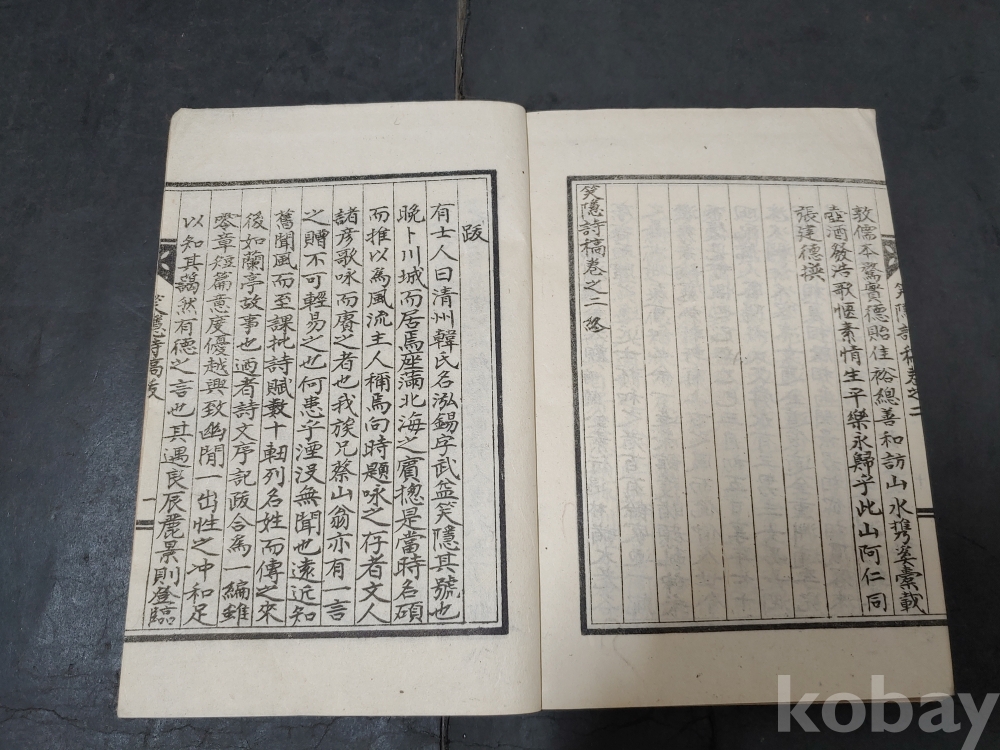 敦儒本騖實德貽佳裕總善和訪山水携奚橐載
壺酒發浩歌愜素情生平樂永歸乎此山阿仁同
張建德撰
笑隱詩稿卷之二 終
笑隱詩稿卷之二
跋
有士人曰清州韓氏名泓錫字武益笑隱其號也
晩卜川城而居焉座滿北海之賓摠是當時名碩
而推以爲風流主人稱焉向時題咏之存者文人
諸彦歌咏而賡之者也我族兄蔡山翁亦有一言
之贈不可輕易之也何患乎湮沒無聞也遠近知
舊聞風而至課批詩賦數十軸列名姓而傳之來
後如蘭亭故事也迺者詩文序記跋合爲一編雖
零章短篇意度優越興致幽閒一出性之冲和足
以知其藹然有德之言也其遇良辰麗景則登臨
笑隱詩稿跋
一
kobay